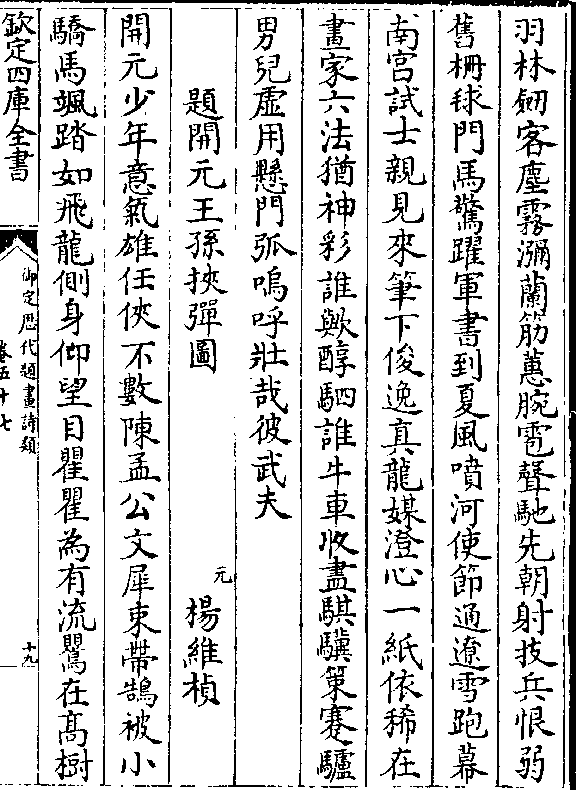 羽林釰客塵霧瀰蘭筋蕙腕雹聲馳先朝射技兵恨弱
舊柵毬門馬驚躍軍書到夏風噴河使節通遼雪跑幕
南宫試士親見來筆下俊逸真龍媒澄心一紙依稀在
畫家六法猶神彩誰歟醇駟誰牛車收盡騏驥策蹇驢
男兒虛用懸門弧嗚呼壯哉彼武夫
題開元王孫挾彈圖
元 楊維楨
開元少年意氣雄任俠不數陳孟公文犀束帶鶻被小
驕馬颯踏如飛龍側身仰望目瞿瞿為有流鸎在髙樹
欽定四庫全書
御定歴代題畫詩類
卷五十七
十九